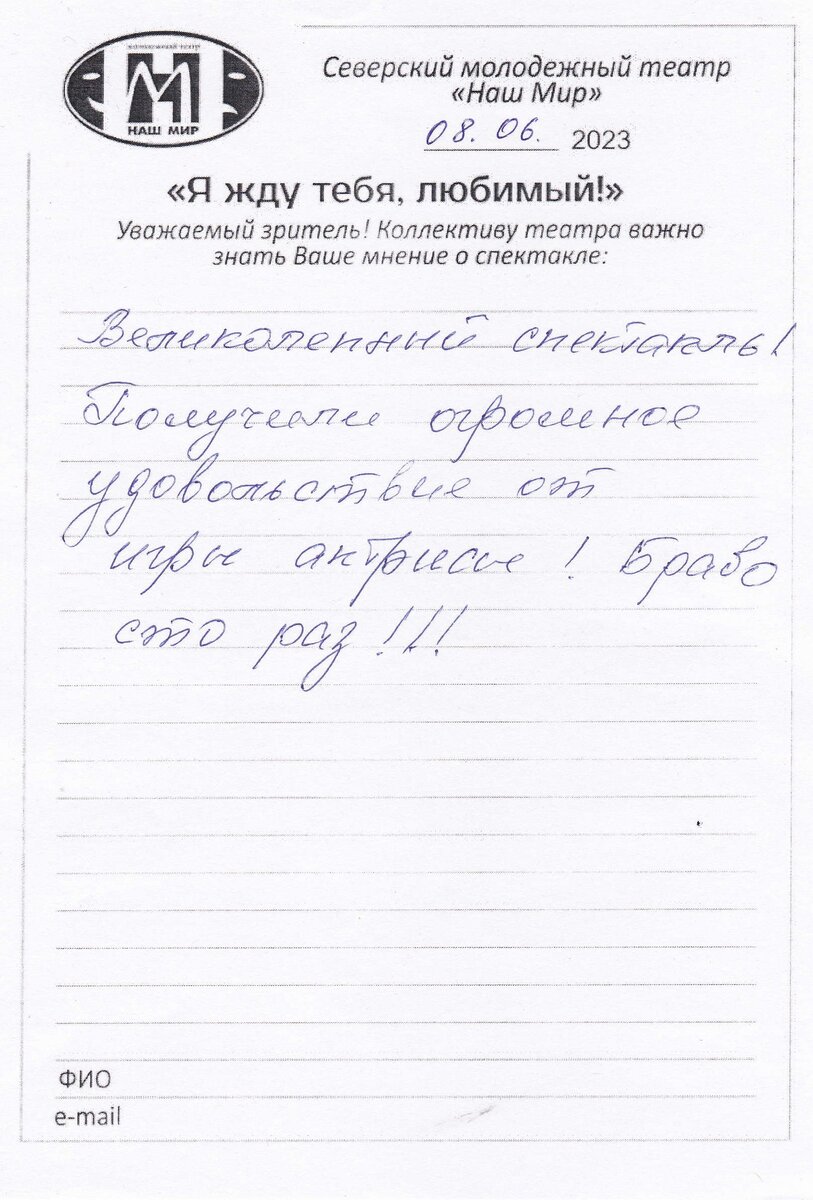 молодежный театр
НАШ МИР
Северский молодежный театр
«Наш Мир»
08. 06. 2023
«Я жду тебя, любимый!»
Уважаемый зритель! Коллективу театра важно
знать Ваше мнение о спектакле:
Великолепный спектакль!
Получили огромное
удовольствие от
игры актрисы! Браво
сто раз!!!
ФИО
e-mail